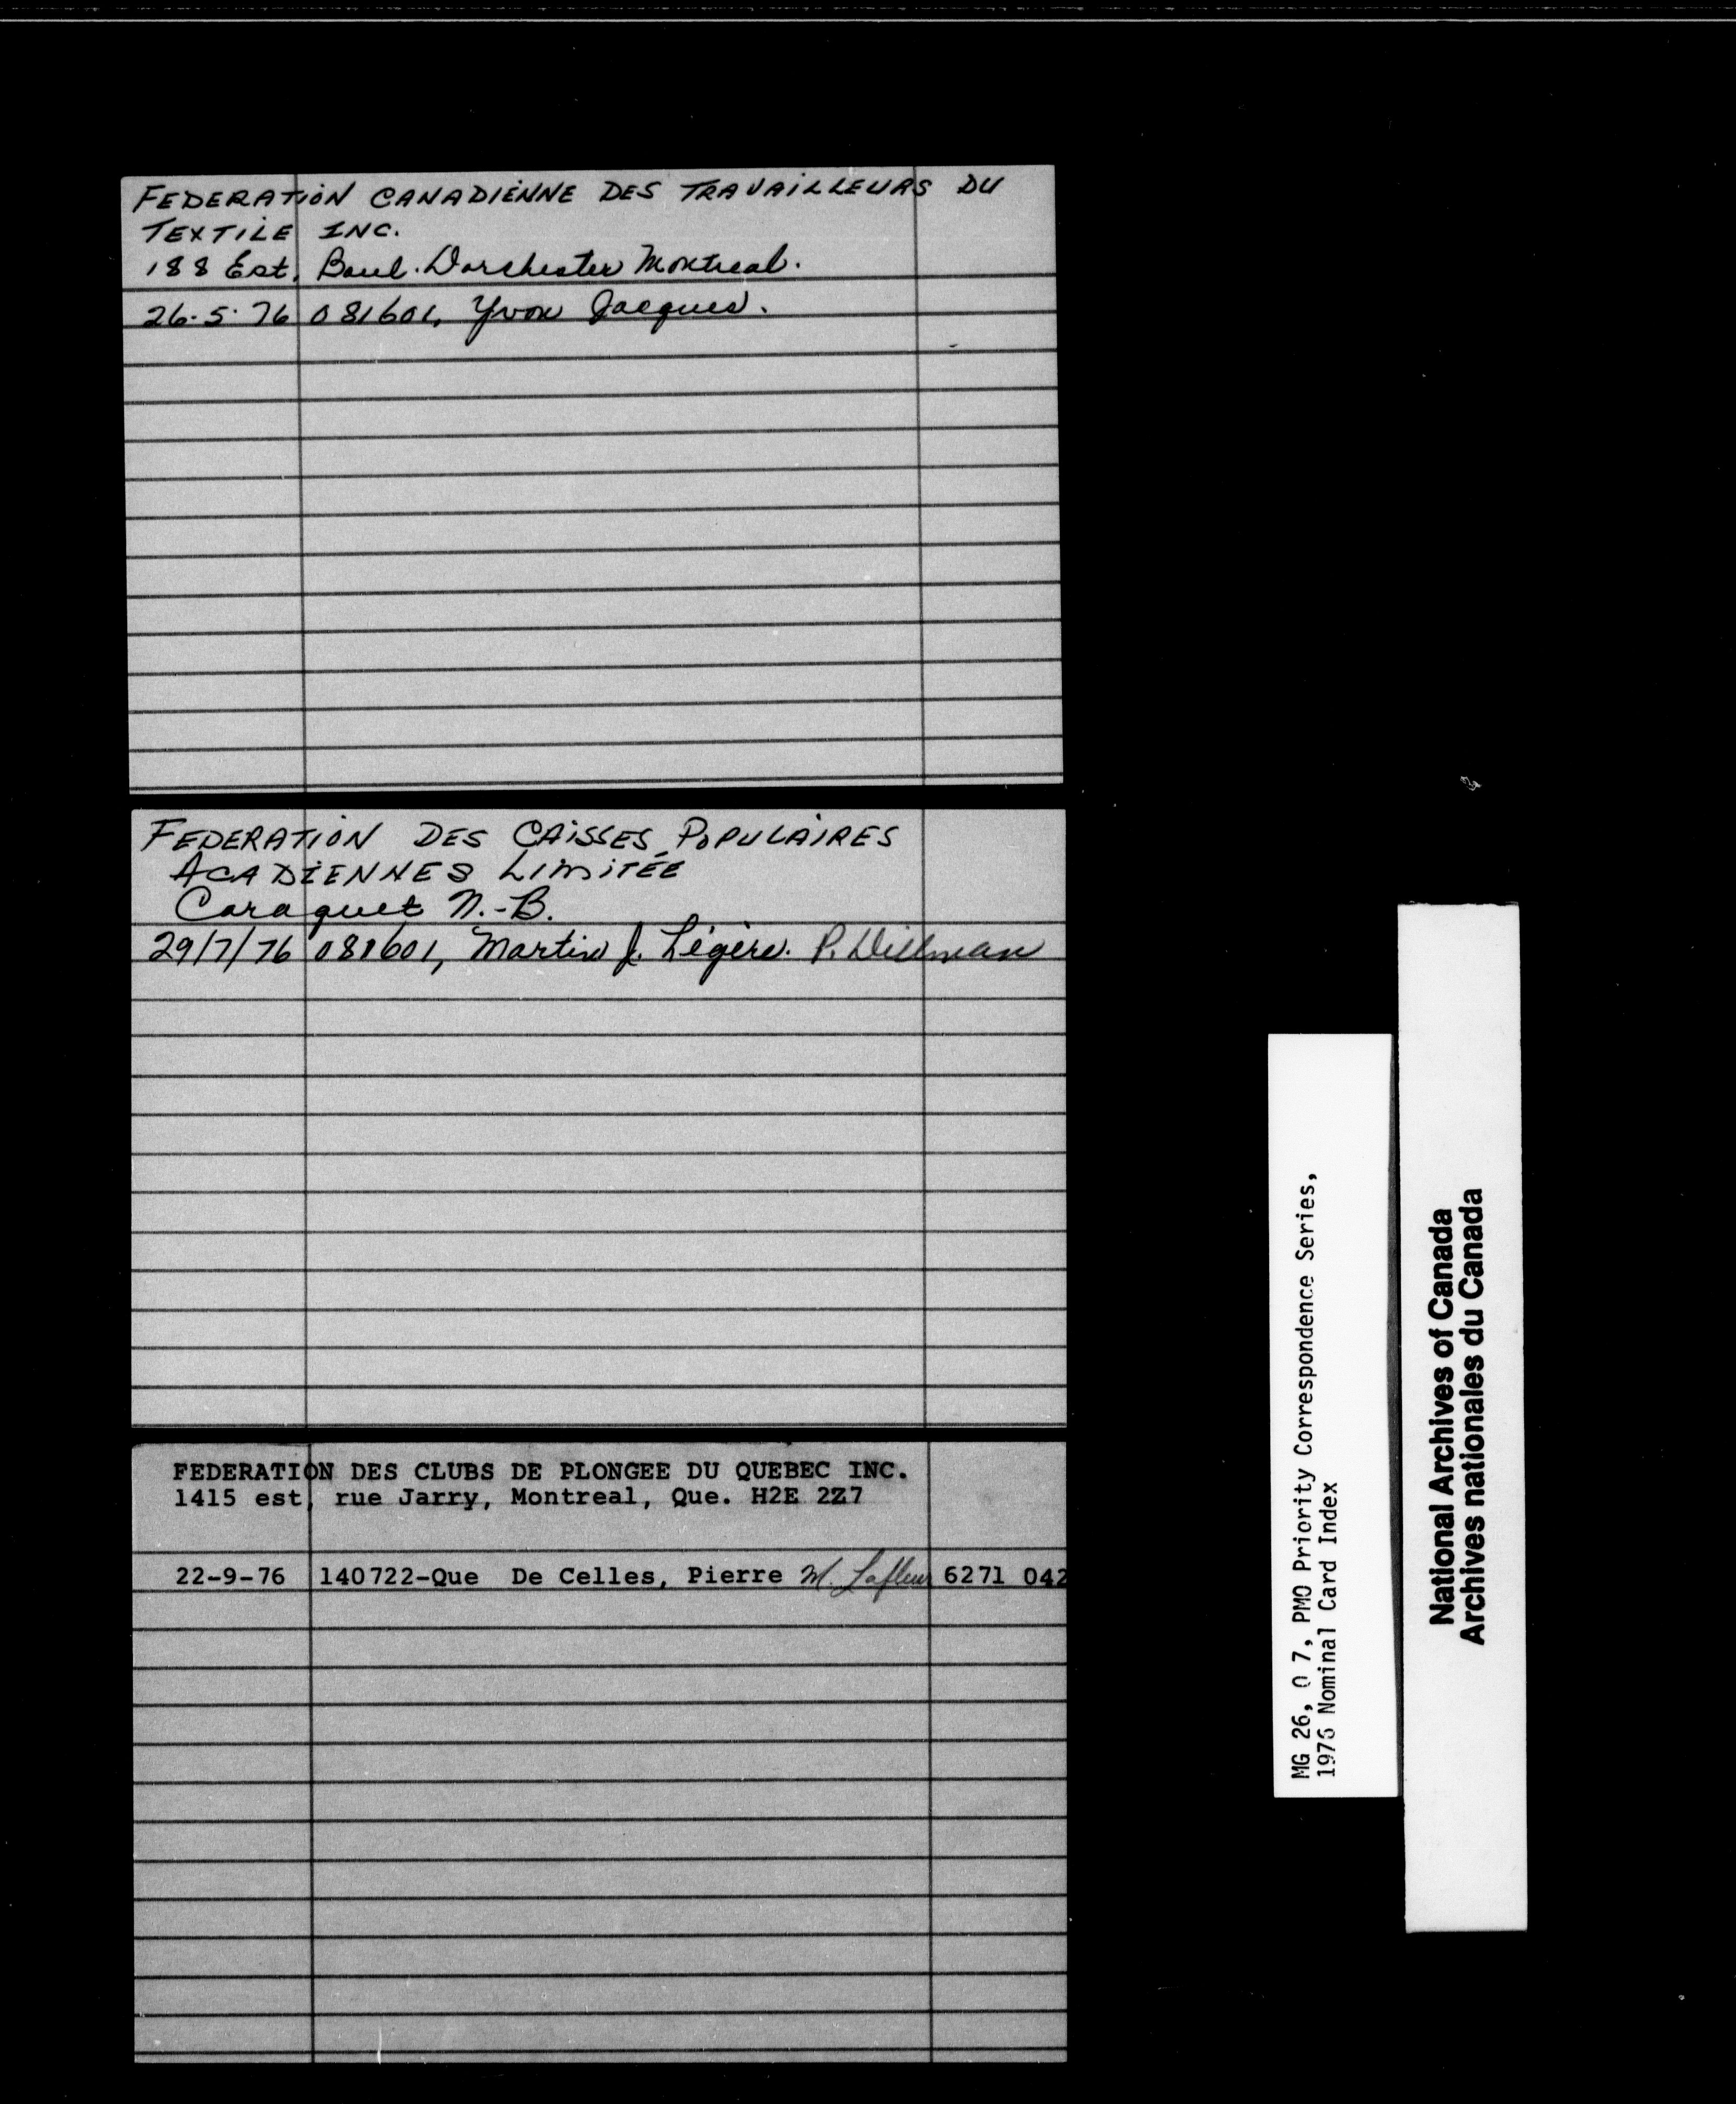 FEDERATION CANADIENNE DES TRAVAILLEURS DU
TEXTILE INC.
188 Est, Boul. Dorchester Montreal.
26.5.76 081601, Yvon Jacques.
FEDERATION DES CAISSES POPULAIRES
ACADIENNES LIMITÉE
Caraquet N.-B.
29/7/76 081601, Martin J. Légère. P. Dillman
FEDERATION DES CLUBS DE PLONGEE DU QUEBEC INC.
1415 est, rue Jarry, Montreal, Que. H2E 2Z7
22-9-76 140722-Que De Celles, Pierre M. Lafleur 6271 042
MG 26, O 7, PMO Priority Correspondence Series,
1976 Nominal Card Index
National Archives of Canada
Archives nationales du Canada